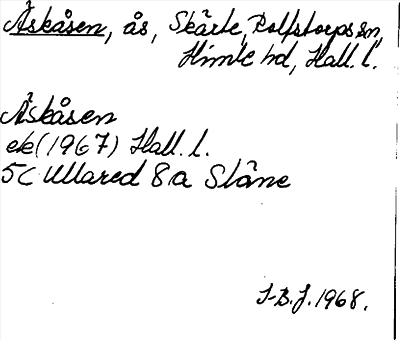 Åskåsen, ås, Skärte, Rolfstorps sn,
Himle hd, Hall. l.
Åskåsen
ek (1967) Hall. l.
5C Ullared 8a Slåne
I-B.J. 1968.